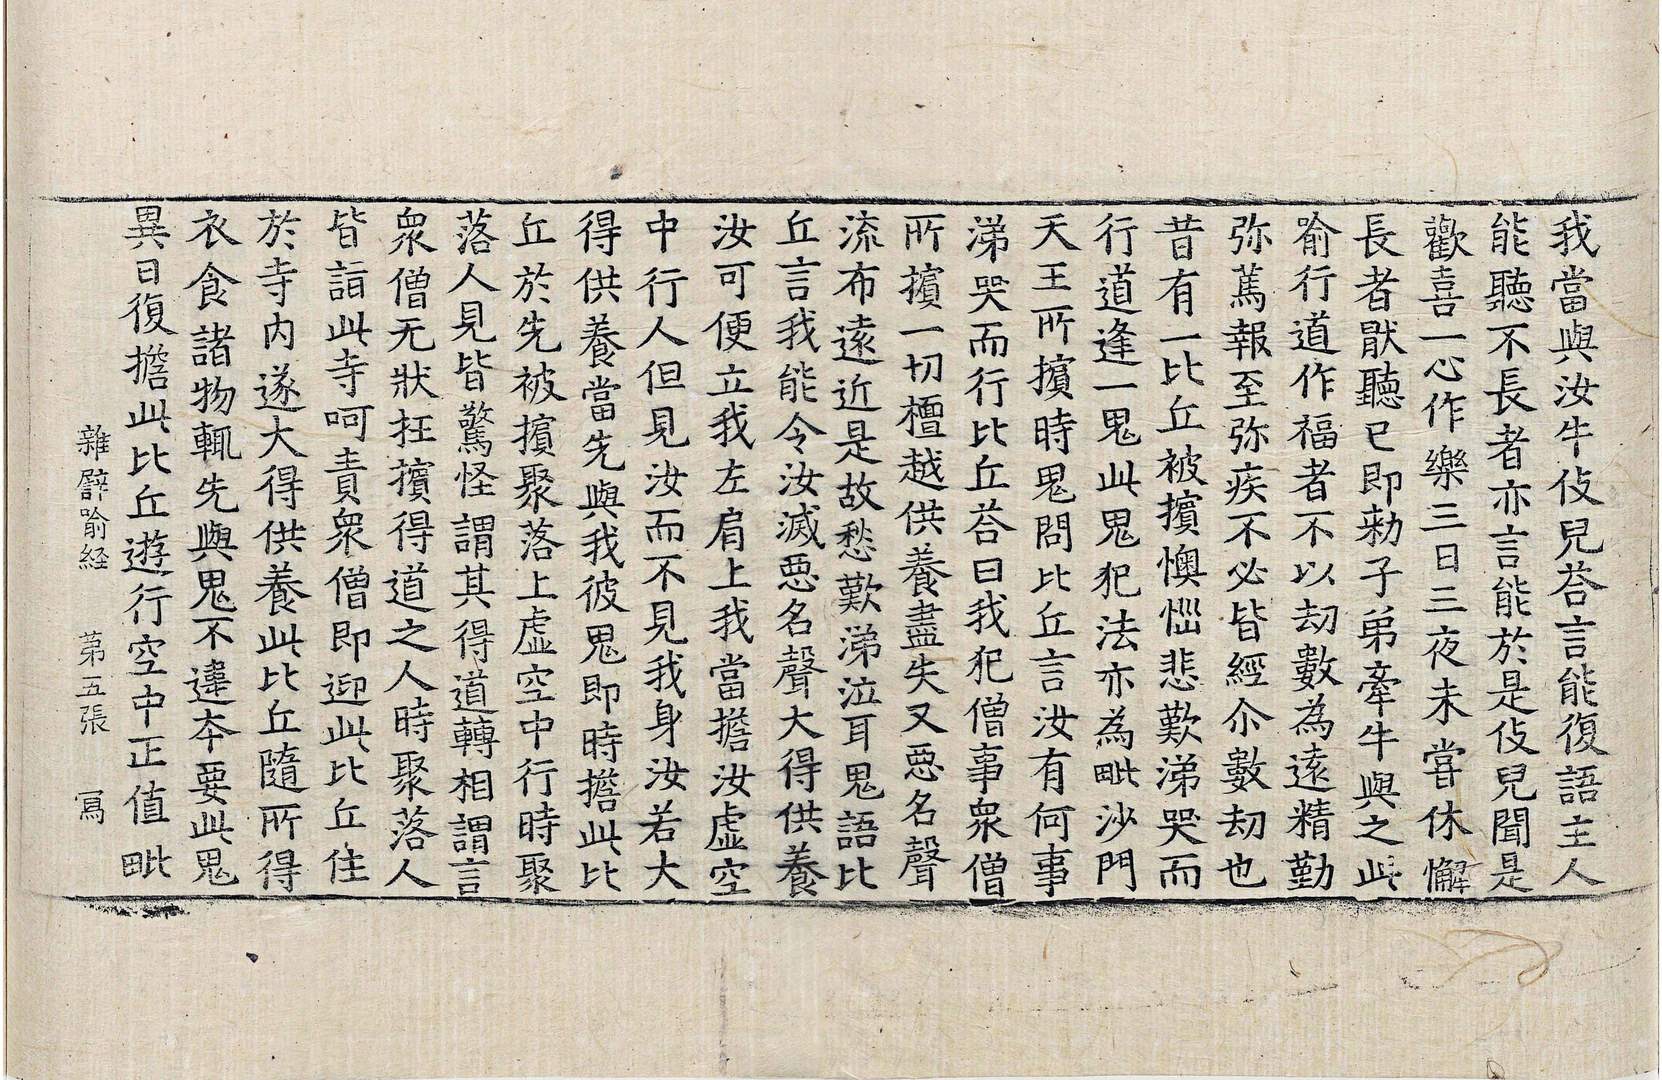 我當與汝牛伎兒荅言能復語主人
能聽不長者亦言能於是伎兒聞是
歡喜一心作樂三日三夜未甞休懈
長者猒聽已即勑子弟牽牛與之此
喻行道作福者不以劫數為遠精勤
弥篤報至弥疾不必皆經尒數劫也
昔有一比丘被擯懊惱悲歎涕哭而
行道逢一鬼此鬼犯法亦為毗沙門
天王所擯時鬼問比丘言汝有何事
涕哭而行比丘荅曰我犯僧事衆僧
所擯一切檀越供養盡失又惡名聲
流布遠近是故愁歎涕泣耳鬼語比
丘言我能令汝滅惡名聲大得供養
汝可便立我左肩上我當擔汝虛空
中行人但見汝而不見我身汝若大
得供養當先與我彼鬼即時擔此比
丘於先被擯聚落上虛空中行時聚
落人見皆驚怪謂其得道轉相謂言
衆僧无狀抂擯得道之人時聚落人
皆詣此寺呵責衆僧即迎此比丘住
於寺內遂大得供養此比丘隨所得
衣食諸物輒先與鬼不違夲要此鬼
異日復擔此比丘遊行空中正值毗
雜譬喻経 苐五張 寫